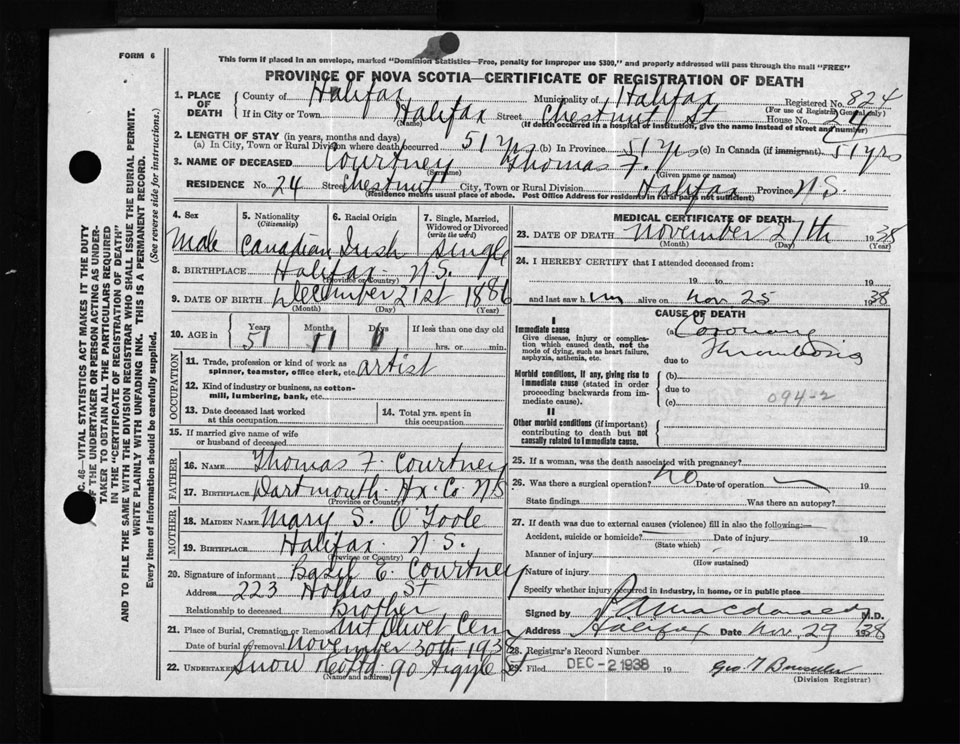 FORM 6
This form if placed in an envelope, marked "Dominion Statistics—Free, penalty for improper use $300," and properly addressed will pass through the mail "FREE"
PROVINCE OF NOVA SCOTIA—CERTIFICATE OF REGISTRATION OF DEATH
1. PLACE OF DEATH County of Halifax Municipality of Halifax Registered No. 824
(For use of Registrar General only)
If in City or Town Halifax Street Chestnut St House No. 24
(Name) (If death occurred in a hospital or institution, give the name instead of street and number)
2. LENGTH OF STAY (in years, months and days)
(a) In City, Town or Rural Division where death occurred 51 Yrs (b) In Province 51 Yrs (c) In Canada (if immigrant) 51 yrs
3. NAME OF DECEASED Courtney Thomas F.
(Surname) (Given name or names)
RESIDENCE No. 24 Street Chestnut City, Town or Rural Division Halifax Province N.S.
(Residence means usual place of abode. Post Office Address for residents in rural parts not sufficient)
4. Sex 5. Nationality (Citizenship) 6. Racial Origin 7. Single, Married, Widowed or Divorced (write the word)
Male Canadian Irish Single
8. BIRTHPLACE Halifax N.S.
(Province or Country)
9. DATE OF BIRTH December 21st 1886
(Month) (Day) (Year)
10. AGE in Years Months Days If less than one day old
51 11 6 hrs. or min.
OCCUPATION
11. Trade, profession or kind of work as spinner, teamster, office clerk, etc. artist
12. Kind of industry or business, as cotton-mill, lumbering, bank, etc.
13. Date deceased last worked at this occupation 14. Total yrs. spent in this occupation
15. If married give name of wife or husband of deceased
FATHER
16. NAME Thomas F. Courtney
17. BIRTHPLACE Dartmouth Hx. Co. N.S.
(Province or Country)
MOTHER
18. MAIDEN NAME Mary S. O'Toole
19. BIRTHPLACE Halifax N.S.
(Province or Country)
20. Signature of informant Basil E. Courtney
Address 223 Hollis St
Relationship to deceased brother
21. Place of Burial, Cremation or Removal Mt Olivet Cem
Date of burial or removal November 30th 1938
22. UNDERTAKER Snow & Co Ltd 90 Argyle S
(Name and address)
MEDICAL CERTIFICATE OF DEATH
23. DATE OF DEATH November 27th 1938
(Month) (Day) (Year)
24. I HEREBY CERTIFY that I attended deceased from:
19 to 19
and last saw him alive on Nov 25 1938
CAUSE OF DEATH
I
Immediate cause
Give disease, injury or complication which caused death, not the mode of dying, such as heart failure, asphyxia, asthenia, etc.
(a) Coronary Thrombosis
due to
Morbid conditions, if any, giving rise to immediate cause (stated in order proceeding backwards from immediate cause).
(b)
due to
(c) 094-2
II
Other morbid conditions (if important) contributing to death but not causally related to immediate cause.
25. If a woman, was the death associated with pregnancy?
26. Was there a surgical operation? no Date of operation 19
State findings Was there an autopsy?
27. If death was due to external causes (violence) fill in also the following:—
Accident, suicide or homicide? Date of injury 19
(State which)
Manner of injury
(How sustained)
Nature of injury
Specify whether injury occurred in industry, in home, or in public place
Signed by Macdonald M.D.
Address Halifax Date Nov. 29 1938
28. Registrar's Record Number
29. Filed DEC -2 1938 19
(Division Registrar)
46—VITAL STATISTICS ACT MAKES IT THE DUTY
OF THE UNDERTAKER OR PERSON ACTING AS UNDER-
TAKER TO OBTAIN ALL THE PARTICULARS REQUIRED
IN THE "CERTIFICATE OF REGISTRATION OF DEATH"
AND TO FILE THE SAME WITH THE DIVISION REGISTRAR WHO SHALL ISSUE THE BURIAL PERMIT.
WRITE PLAINLY WITH UNFADING INK. THIS IS A PERMANENT RECORD.
Every item of information should be carefully supplied. (See reverse side for instructions.)